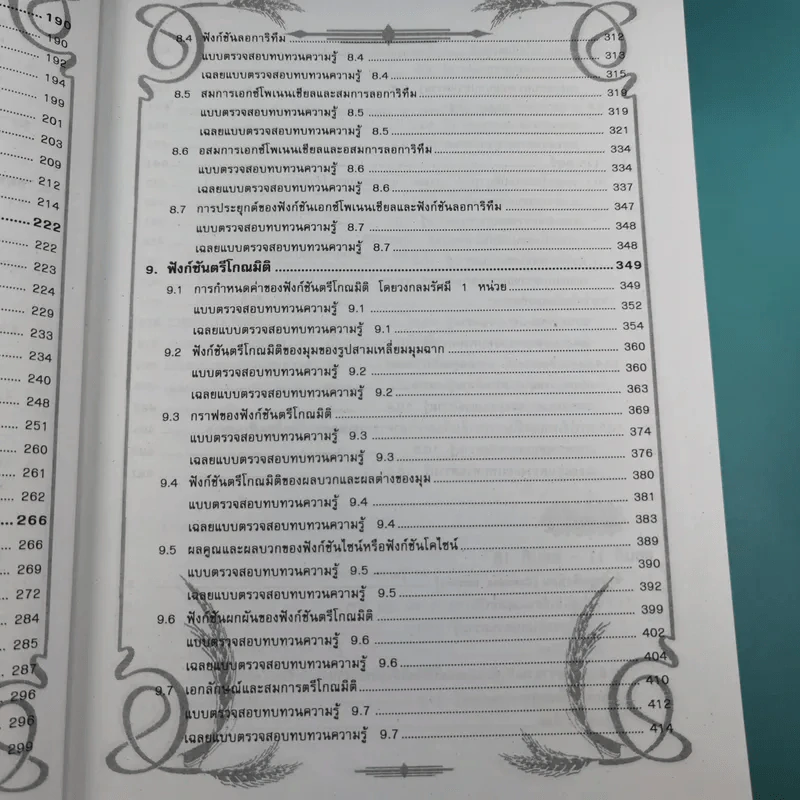 190
190
192
194
199
201
203
209
212
214
222
222
223
224
229
233
234
240
248
251
260
261
262
266
266
269
272
284
285
287
296
296
299
8.4 ฟังก์ชันลอการิทึม 312
แบบตรวจสอบทบทวนความรู้ 8.4 313
เฉลยแบบตรวจสอบทบทวนความรู้ 8.4 315
8.5 สมการเอกซ์โพเนนเชียลและสมการลอการิทึม 319
แบบตรวจสอบทบทวนความรู้ 8.5 319
เฉลยแบบตรวจสอบทบทวนความรู้ 8.5 321
8.6 อสมการเอกซ์โพเนนเชียลและอสมการลอการิทึม 334
แบบตรวจสอบทบทวนความรู้ 8.6 334
เฉลยแบบตรวจสอบทบทวนความรู้ 8.6 337
8.7 การประยุกต์ของฟังก์ชันเอกซ์โพเนนเชียลและฟังก์ชันลอการิทึม 347
แบบตรวจสอบทบทวนความรู้ 8.7 348
เฉลยแบบตรวจสอบทบทวนความรู้ 8.7 348
9. ฟังก์ชันตรีโกณมิติ 349
9.1 การกำหนดค่าของฟังก์ชันตรีโกณมิติ โดยวงกลมรัศมี 1 หน่วย 349
แบบตรวจสอบทบทวนความรู้ 9.1 352
เฉลยแบบตรวจสอบทบทวนความรู้ 9.1 354
9.2 ฟังก์ชันตรีโกณมิติของมุมของรูปสามเหลี่ยมมุมฉาก 360
แบบตรวจสอบทบทวนความรู้ 9.2 360
เฉลยแบบตรวจสอบทบทวนความรู้ 9.2 363
9.3 กราฟของฟังก์ชันตรีโกณมิติ 369
แบบตรวจสอบทบทวนความรู้ 9.3 374
เฉลยแบบตรวจสอบทบทวนความรู้ 9.3 376
9.4 ฟังก์ชันตรีโกณมิติของผลบวกและผลต่างของมุม 380
แบบตรวจสอบทบทวนความรู้ 9.4 381
เฉลยแบบตรวจสอบทบทวนความรู้ 9.4 383
9.5 ผลคูณและผลบวกของฟังก์ชันไซน์หรือฟังก์ชันโคไซน์ 389
แบบตรวจสอบทบทวนความรู้ 9.5 390
เฉลยแบบตรวจสอบทบทวนความรู้ 9.5 392
9.6 ฟังก์ชันผกผันของฟังก์ชันตรีโกณมิติ 399
แบบตรวจสอบทบทวนความรู้ 9.6 402
เฉลยแบบตรวจสอบทบทวนความรู้ 9.6 404
9.7 เอกลักษณ์และสมการตรีโกณมิติ 410
แบบตรวจสอบทบทวนความรู้ 9.7 412
เฉลยแบบตรวจสอบทบทวนความรู้ 9.7 414